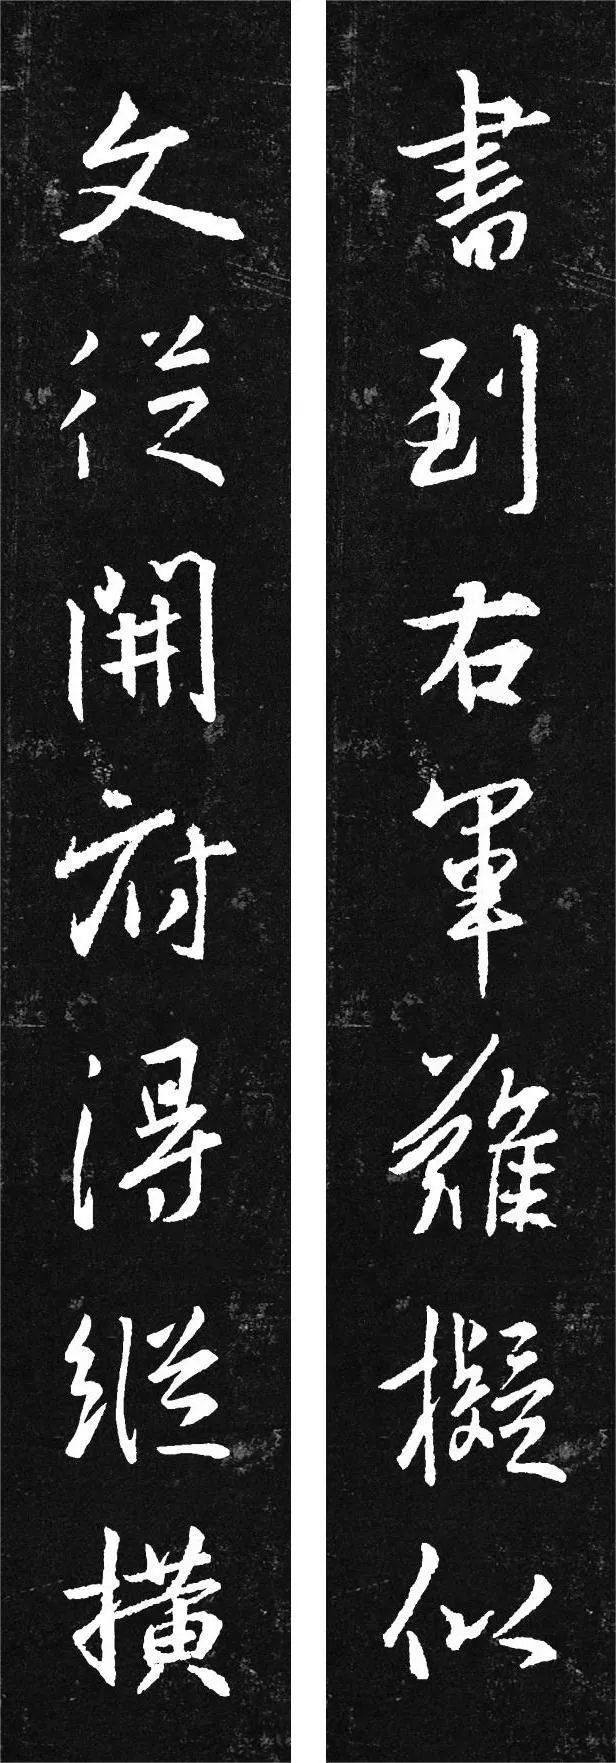 書到右軍難擬似
文從開府得縱橫